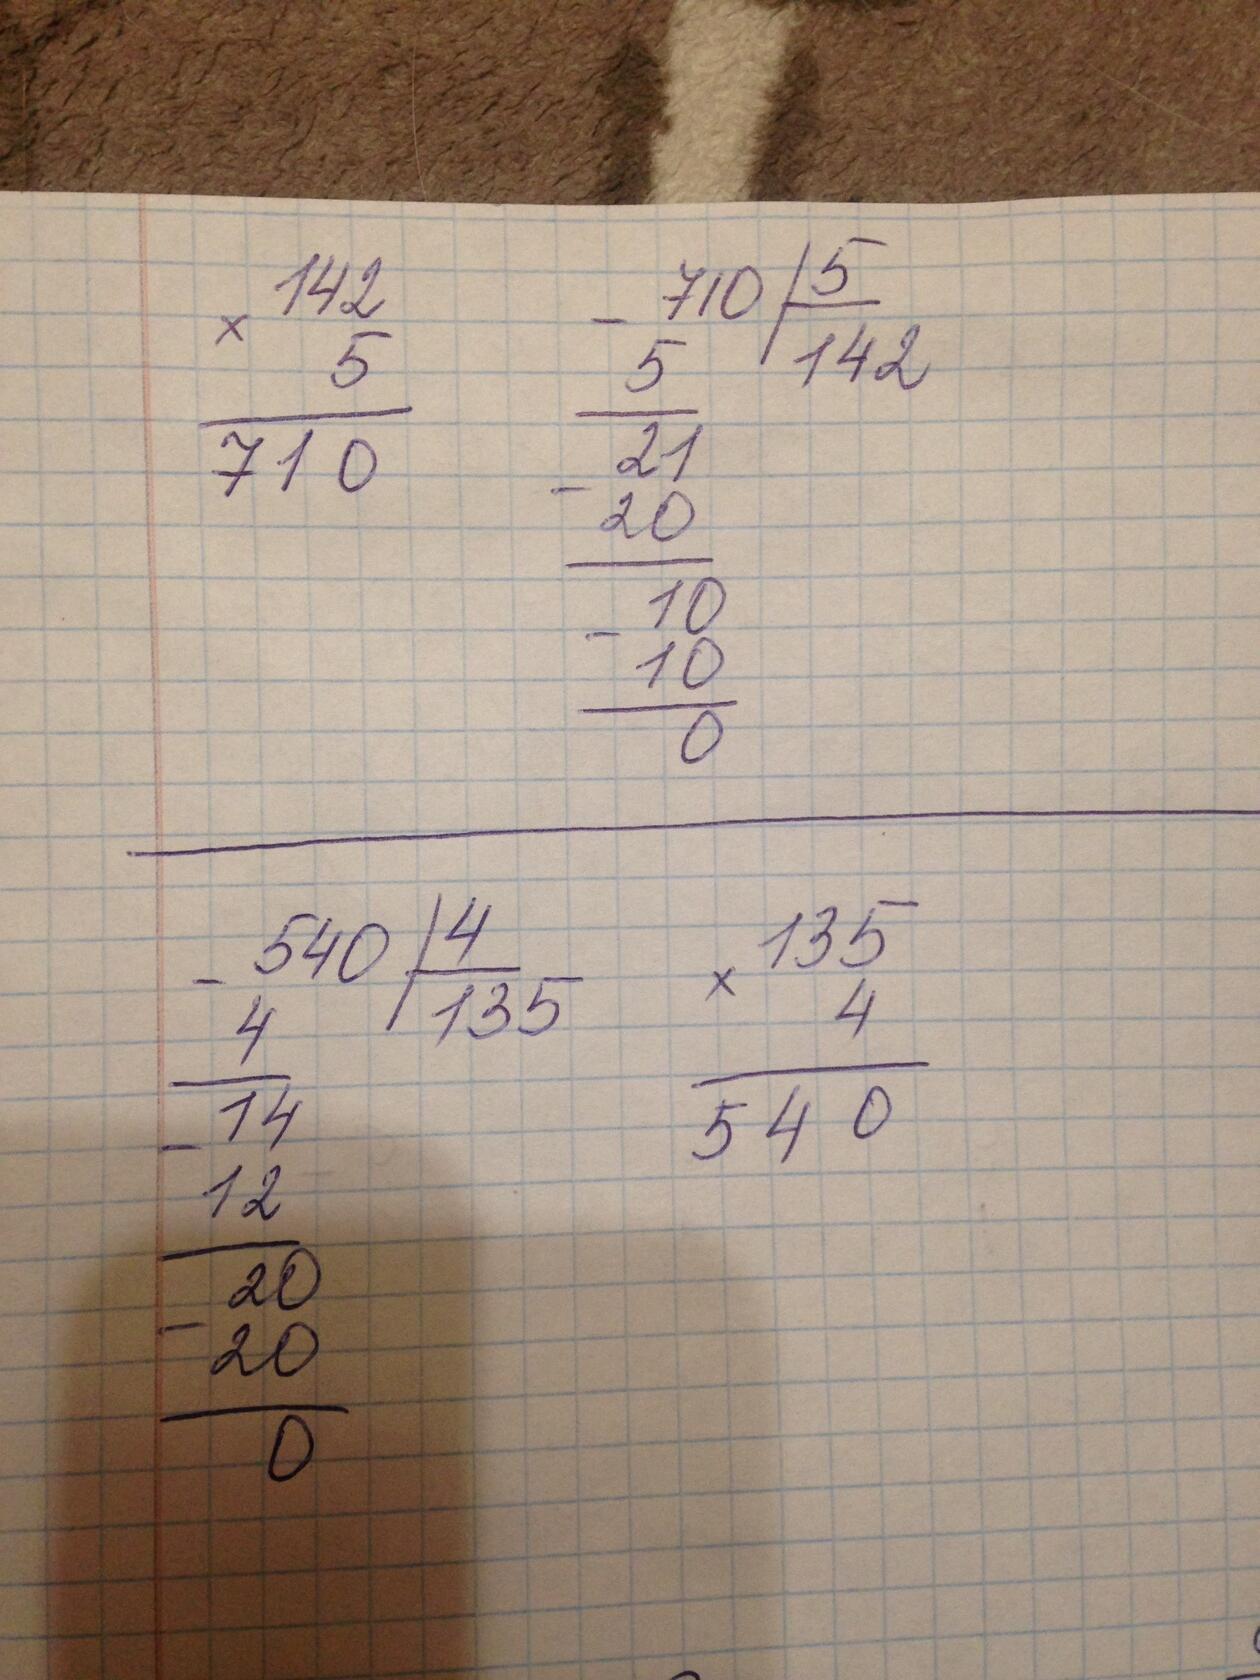 × 142
5
710
- 710 | 5
5 142
21
- 20
10
- 10
0
- 540 | 4
4 135
14
- 12
20
- 20
0
× 135
4
540